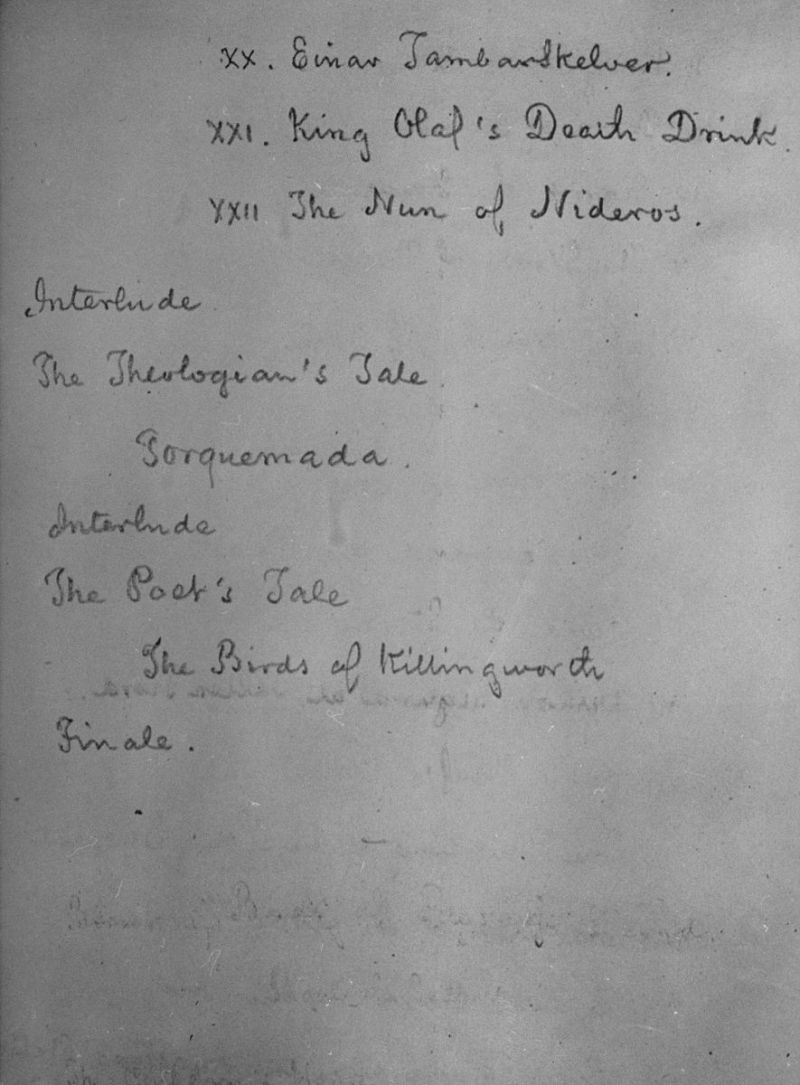 XX. Einar Tambarskelver.
XXI. King Olaf's Death Drink.
XXII The Nun of Nideros.
Interlude
The Theologian's Tale.
Torquemada.
Interlude
The Poet's Tale
The Birds of Killingworth
Finale.